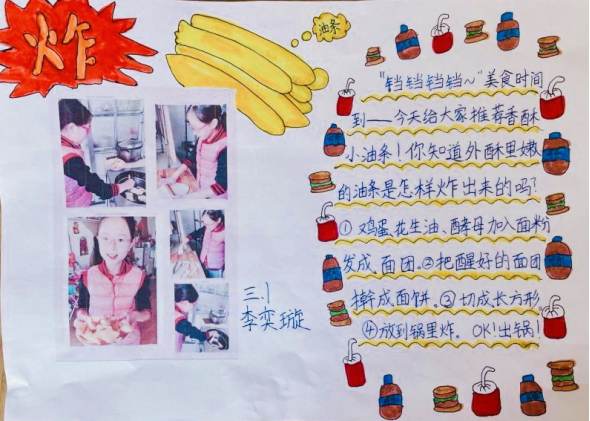 炸
油条
"铛铛铛铛~"美食时间
到——今天给大家推荐香酥
小油条!你知道外酥里嫩
的油条是怎样炸出来的吗?
①鸡蛋、花生油、酵母加入面粉
发成面团。②把醒好的面团
擀成面饼。③切成长方形
④放到锅里炸。OK!出锅!
三.1
李奕璇